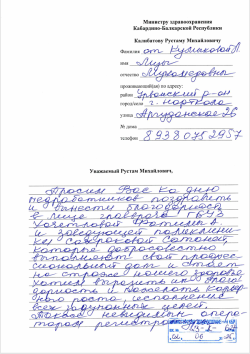 Министру здравоохранения
Кабардино-Балкарской Республики
Калибатову Рустаму Михайловичу
Фамилия от Куликовой Л.
имя Лизы
отчество Мухамедовна
проживающий(ая) по адресу:
район Урванский р-он
город/село г. Нарткала
улица
№ дома
телефон 89380752957
Уважаемый Рустам Михайлович,
Просим Вас ко дню
медработников поздравить
и вынести благодарность
в лице главврача ГБУЗ
и заведующей поликлини-
кы Сахроковой Сатаней,
которые добросовестно
выполняют свой профес-
сиональный долг и стоят
на страже нашего здоровья
хотим выразить им благо-
дарность и пожелать карьер-
ного роста, исполнения
всех жизненных целей.
Также невидимых опера-
торов регистратуры